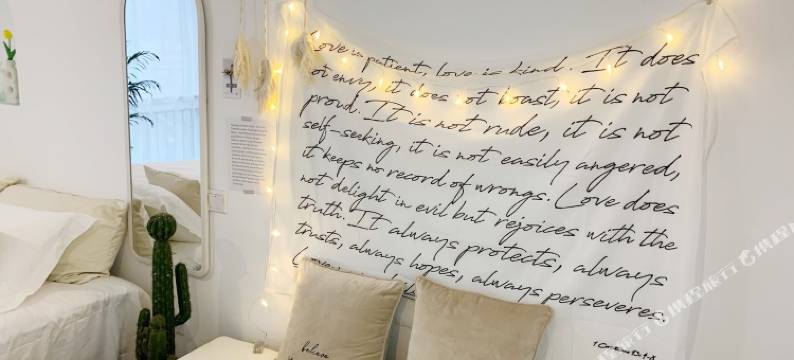 Love is patient, love is kind. It does
not envy, it does not boast, it is not
proud. It is not rude, it is not
self-seeking, it is not easily angered,
it keeps no record of wrongs. Love does
not delight in evil but rejoices with the
truth. It always protects, always
trusts, always hopes, always perseveres.
believe
携程旅行
携程旅行